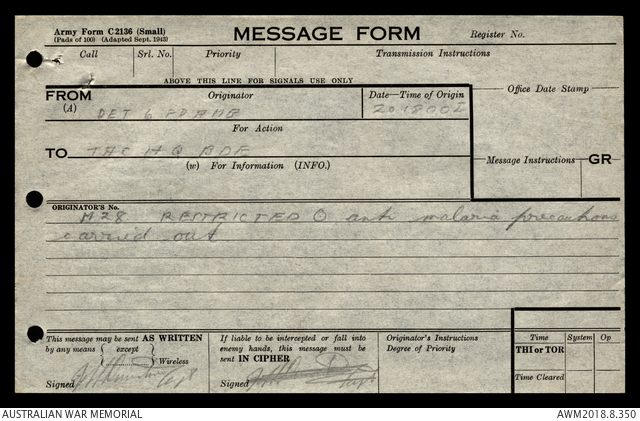 Army Form C2136 (Small)
(Pads of 100) (Adapted Sept. 1943)
MESSAGE FORM
Register No.
Call
Srl. No.
Priority
Transmission Instructions
ABOVE THIS LINE FOR SIGNALS USE ONLY
FROM
(A)
Originator
Date—Time of Origin
Office Date Stamp
DET 6
201800I
For Action
TO
TAC H Q BDE
(w) For Information (INFO.)
Message Instructions
GR
ORIGINATOR'S No.
M28 RESTRICTED O anti malaria precautions
carried out
This message may be sent AS WRITTEN
by any means
except
Wireless
Signed
Capt
If liable to be intercepted or fall into
enemy hands, this message must be
sent IN CIPHER
Signed
Capt
Originator's Instructions
Degree of Priority
Time
System
Op
THI or TOR
Time Cleared
AUSTRALIAN WAR MEMORIAL
AWM2018.8.350